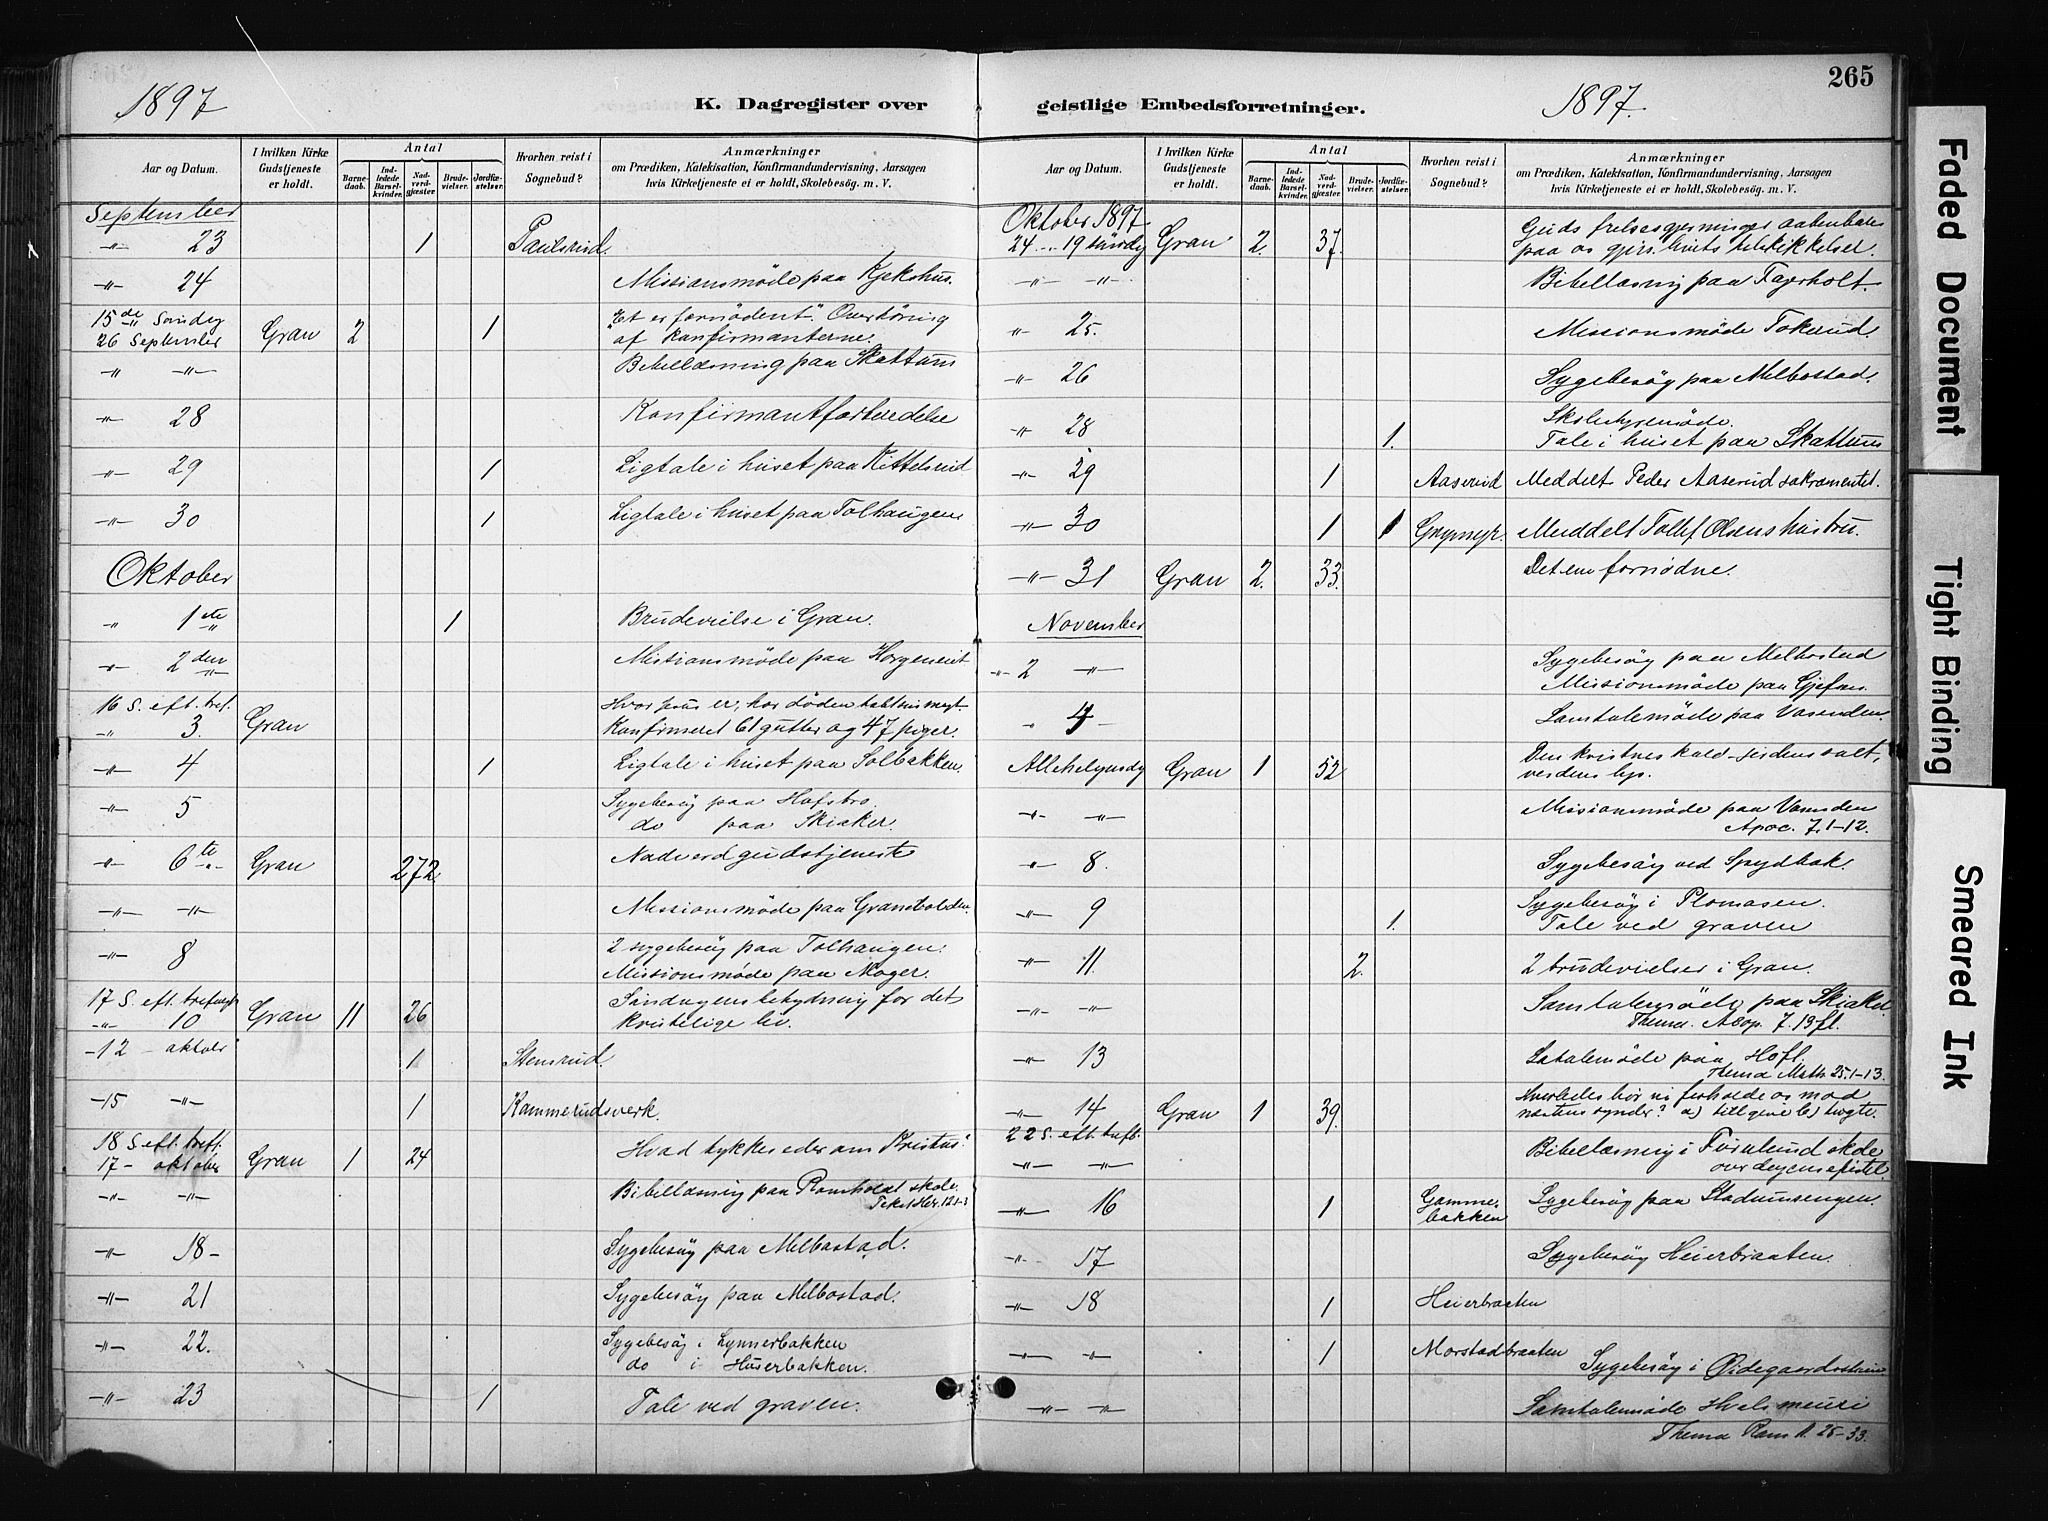 1897
K. Dagregister over
Aar og Datum.
I hvilken Kirke Gudstjeneste er holdt.
Antal
Barne-daab.
Ind-ledede Barsel-kvinder.
Nad-verd-gjester.
Brude-vielser.
Jordfæ-stelser.
Hvorhen reist i Sognebud?
Anmærkninger
om Prædiken, Katekisation, Konfirmandundervisning, Aarsagen
hvis Kirketjeneste ei er holdt, Skolebesøg. m. V.
September
-"- 23 1 Paulsrud.
-"- 24 Missionsmøde paa Kjekshus.
15de Søndag "Et er fornødent". Overhøring
26 September Gran 2 1 af konfirmanterne.
" -"- Bibellæsning paa Skattum
-"- 28 Konfirmantforberedelse
-"- 29 1 Ligtale i huset paa Kittelsrud
-"- 30 1 Ligtale i huset paa Tolhaugen
Oktober
" 1ste 1 Brudevielse i Gran.
-"- 2den Missionsmøde paa Horgeneiet
16 S. eft. tref. Hvor er, har døden tabt
" 3. Gran Konfirmeret 61 gutter og 47 piger.
-"- 4 1 Ligtale i huset paa Solbakken.
-"- 5 Sygebesøg paa Hofsbro.
do paa Skiaker.
-"- 6te Gran 272 Nadverdgudstjeneste
-"- -"- Missionsmøde paa
-"- 8 2 sygebesøg paa Tolhaugen.
Missionsmøde paa Moger.
17 S. eft. Søndagens betydning for det
-"- 10 Gran 11 26 kristelige liv.
-12 - oktober 1 Stensrud.
-15 -"- 1 Kammerudsverk
18 S. eft. tref.
17- oktober Gran 1 24 Hvad tykkes eder om Kristus?
-"- -"- Bibellæsning paa skole.
Tekst Hebr. 12 1-3
-"- 18- Sygebesøg paa Melbostad.
-"- 21 Sygebesøg paa Melbostad.
-"- 22. Sygebesøg i Lynnerbakken
do i Huserbakken.
-"- 23 1 Tale ved graven.
265
geistlige Embedsforretninger.
1897.
Aar og Datum.
I hvilken Kirke Gudstjeneste er holdt.
Antal
Barne-daab.
Ind-ledede Barsel-kvinder.
Nad-verd-gjester.
Brude-vielser.
Jordfæ-stelser.
Hvorhen reist i Sognebud?
Anmærkninger
om Prædiken, Katekisation, Konfirmandundervisning, Aarsagen
hvis Kirketjeneste ei er holdt, Skolebesøg. m. V.
Oktober 1897 Guds frelsesgjerninger aabenbares
24 -"- 19 søndg Gran 2. 37. paa os gjen. livets tilskikkelser.
-"- -"- Bibellæsning paa Fagerholt.
-"- 25. Missionsmøde Tokerud.
-"- 26 Sygebesøg paa Melbostad.
-"- 28 1.
Tale i huset paa Skattum
-"- 29 1 Aaserud Meddelt Peder Aaserud sakramentet.
-"- 30 1 1 Grymyr. Meddelt Tollef Olsens hustru.
-"- 31 Gran 2. 33. Det ene fornødne.
November
-"- 2 -"- Sygebesøg paa Melbostad
Missionsmøde paa Gjefsen.
" 4 Samtalemøde paa Vasenden.
Allehelgensdg Gran 1 52 Den kristnes kald - jordens salt,
verdens lys.
-"- -"- Missionsmøde paa Vasenden
Apoc. 7. 1-12.
-"- 8. Sygebesøg ved Spydbak.
-"- 9 1. Sygebesøg i Plomasen.
Tale ved graven
-"- 11. 2. 2 brudevielser i Gran.
-"- -"- Samtalemøde paa Skiaker
Thema. Acop. 7. 13 fl.
-"- 13 paa Hofl.
Thema Math 25. 1-13.
-"- 14 Gran 1 39. Hvorledes bør vi forholde os mod
næstens synder? a) tilgive b) tugte.
22 S. eft. tref.
-"- -"- Bibellæsning i skole
over dagens epistel.
-"- 16 1 Gamme-bakken Sygebesøg paa Stadumsengen.
-"- 17 Sygebesøg Heierbraaten.
-"- 18 1 Heierbraaten
-"- -"- 1 Morstadbraaten
Sygebesøg i
-"- -"- Samtalemøde
Thema Rom 25-33.
Faded Document
Tight Binding
Smeared Ink